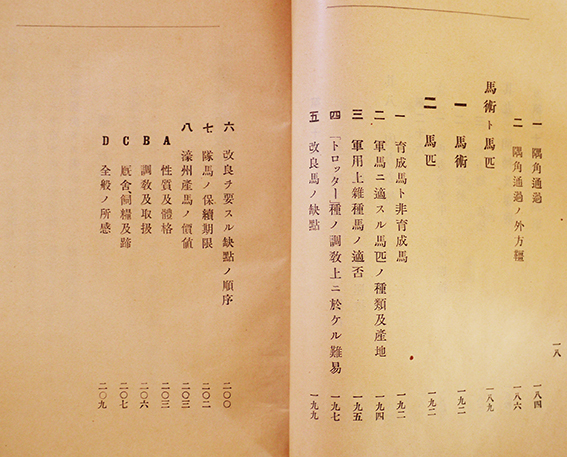 一 隅角通過 一八四
二 隅角通過ノ外方繮 一八六
馬術ト馬匹 一八九
一 馬術 一九二
二 馬匹 一九二
一 育成馬ト非育成馬 一九二
二 軍馬ニ適スル馬匹ノ種類及產地 一九四
三 軍用上雜種馬ノ適否 一九五
四 「トロッター」種ノ調敎上ニ於ケル難易 一九七
五 改良馬ノ缺點 一九九
一八
六 改良ヲ要スル缺點ノ順序 二〇〇
七 隊馬ノ保續期限 二〇二
八 濠州產馬ノ價値 二〇三
A 性質及體格 二〇三
B 調敎及取扱 二〇六
C 厩舍、飼糧及蹄 二〇七
D 全般ノ所感 二〇九